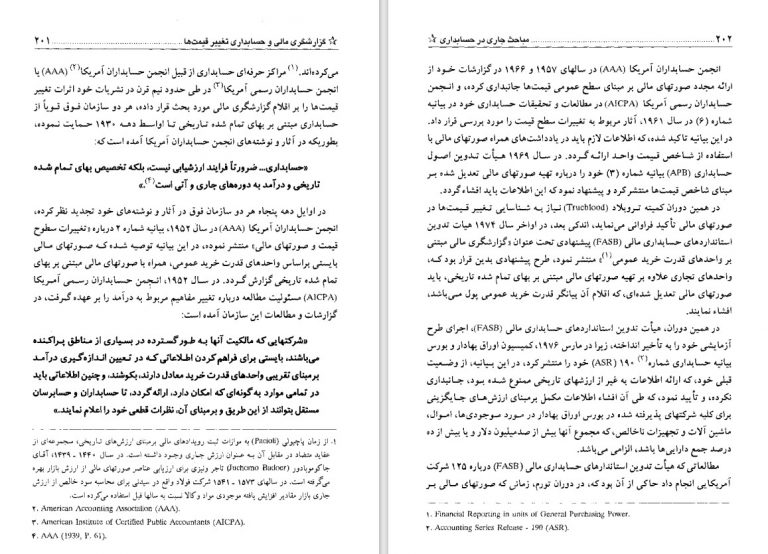 ☆ گزارشگری مالی و حسابداری تغییر قیمت‌ها ........ ۲۰۱
می‌کرده‌اند.(۱) مراکز حرفه‌ای حسابداری از قبیل انجمن حسابداران آمریکا(۲) (AAA) یا
انجمن حسابداران رسمی آمریکا(۳) در طی حدود نیم قرن در نشریات خود اثرات تغییر
قیمت‌ها را بر اقلام گزارشگری مالی مورد بحث قرار داده، هر دو سازمان فوق قویاً از
حسابداری مبتنی بر بهای تمام شده تاریخی تا اواسط دهه ۱۹۳۰ حمایت نموده،
بطوریکه در آثار و نوشته‌های انجمن حسابداران آمریکا آمده است که:
«حسابداری... ضرورتاً فرایند ارزشیابی نیست، بلکه تخصیص بهای تمام شده
تاریخی و درآمد به دوره‌های جاری و آتی است(۴).»
در اوایل دهه پنجاه هر دو سازمان فوق در آثار و نوشته‌های خود تجدید نظر کرده،
انجمن حسابداران آمریکا (AAA) در سال ۱۹۵۲، بیانیه شماره ۲ درباره «تغییرات سطوح
قیمت و صورتهای مالی» منتشر نموده، در این بیانیه توصیه شده که صورتهای مالی
بایستی براساس واحدهای قدرت خرید عمومی، همراه با صورتهای مالی مبتنی بر بهای
تمام شده تاریخی گزارش گردد. در سال ۱۹۵۲، انجمن حسابداران رسمی آمریکا
(AICPA) مسئولیت مطالعه درباره تغییر مفاهیم مربوط به درآمد را بر عهده گرفت، در
گزارشات و مطالعات این سازمان آمده است:
«شرکتهایی که مالکیت آنها به طور گسترده در بسیاری از مناطق پراکنده
می‌باشند، بایستی برای فراهم‌کردن اطلاعاتی که در تعیین اندازه‌گیری درآمد
برمبنای تقریبی واحدهای قدرت خرید معادل دارند، بکوشند، و چنین اطلاعاتی باید
در تمامی موارد به گونه‌ای که امکان دارد، ارائه گردد، تا حسابداران و حسابرسان
مستقل بتوانند از این طریق و برمبنای آن، نظرات قطعی خود را اعلام نمایند.»
۱. از زمان پاچیولی (Pacioli) به موازات ثبت رویدادهای مالی برمبنای ارزش‌های تاریخی، مجموعه‌ای از
عقاید متضاد در مقابل آن به عنوان ارزش جاری وجود داشته است. در سال ۱۴۴۰ - ۱۴۳۹، آقای
جاکومبادور (Jachomo Badoer) تاجر ونیزی برای ارزیابی عناصر صورتهای مالی از ارزش بازار بهره
می‌گرفته است. در سالهای ۱۵۷۳ - ۱۵۴۱ شرکت فولاد واقع در سیدنی برای محاسبه سود خالص از ارزش
جاری بازار مقادیر افزایش یافته موجودی مواد و کالا نسبت به سالها قبل استفاده می‌کرده است.
۲. American Accounting Association (AAA).
۳. American Institute of Certified Public Accountants (AICPA).
۴. AAA (1939, P. 61).
۲۰۲ ........ مباحث جاری در حسابداری ☆
انجمن حسابداران آمریکا (AAA) در سالهای ۱۹۵۷ و ۱۹۶۶ در گزارشات خود از
ارائه مجدد صورتهای مالی بر مبنای سطح عمومی قیمت‌ها جانبداری کرده، و انجمن
حسابداران رسمی آمریکا (AICPA) در مطالعات و تحقیقات حسابداری خود در بیانیه
شماره (۶) در سال ۱۹۶۱، آثار مربوط به تغییرات سطح قیمت را مورد بررسی قرار داد.
در این بیانیه تاکید شده، که اطلاعات لازم باید در یادداشت‌های همراه صورتهای مالی با
استفاده از شاخص قیمت واحد ارائه گردد. در سال ۱۹۶۹ هیأت تدوین اصول
حسابداری (APB) بیانیه شماره (۳) خود را درباره تهیه صورتهای مالی تعدیل شده بر
مبنای شاخص قیمت‌ها منتشر کرد و پیشنهاد نمود که این اطلاعات باید افشاء گردد.
در همین دوران کمیته تروبلاد (Trueblood) نیاز به شناسایی تغییر قیمت‌ها در
صورتهای مالی تأکید فراوانی می‌نماید، اندکی بعد، در اواخر سال ۱۹۷۴ هیأت تدوین
استانداردهای حسابداری مالی (FASB) پیشنهادی تحت عنوان «گزارشگری مالی مبتنی
بر واحدهای قدرت خرید عمومی(۱)» منتشر نمود، طرح پیشنهادی بدین قرار بود که،
واحدهای تجاری علاوه بر تهیه صورتهای مالی مبتنی بر بهای تمام شده تاریخی، باید
صورتهای مالی تعدیل شده‌ای، که اقلام آن بیانگر قدرت خرید عمومی پول می‌باشد،
افشاء نمایند.
در همین دوران، هیأت تدوین استانداردهای حسابداری مالی (FASB)، اجرای طرح
آزمایشی خود را به تأخیر انداخته، زیرا در مارس ۱۹۷۶، کمیسیون اوراق بهادار و بورس
بیانیه حسابداری شماره(۲) ۱۹۰ (ASR) خود را منتشر کرد، در این بیانیه، از وضعیت
قبلی خود، که ارائه اطلاعات به غیر از ارزشهای تاریخی ممنوع شده بود، جانبداری
نکرده، و تأیید نمود، که طی آن افشاء اطلاعات مکمل برمبنای ارزش‌های جایگزینی
برای کلیه شرکتهای پذیرفته شده در بورس اوراق بهادار در مورد سرموجودی‌ها، اموال،
ماشین آلات و تجهیزات ناخالص، که مجموع آنها بیش از صدمیلیون دلار و یا بیش از ده
درصد جمع دارایی‌ها باشد، الزامی می‌باشد.
مطالعاتی که هیأت تدوین استانداردهای حسابداری مالی (FASB) درباره ۱۲۵ شرکت
آمریکایی انجام داد حاکی از آن بود که، در دوران تورم، زمانی که صورتهای مالی بر
۱. Financial Reporting in units of General Purchasing Power.
۲. Accounting Series Release - 190 (ASR).